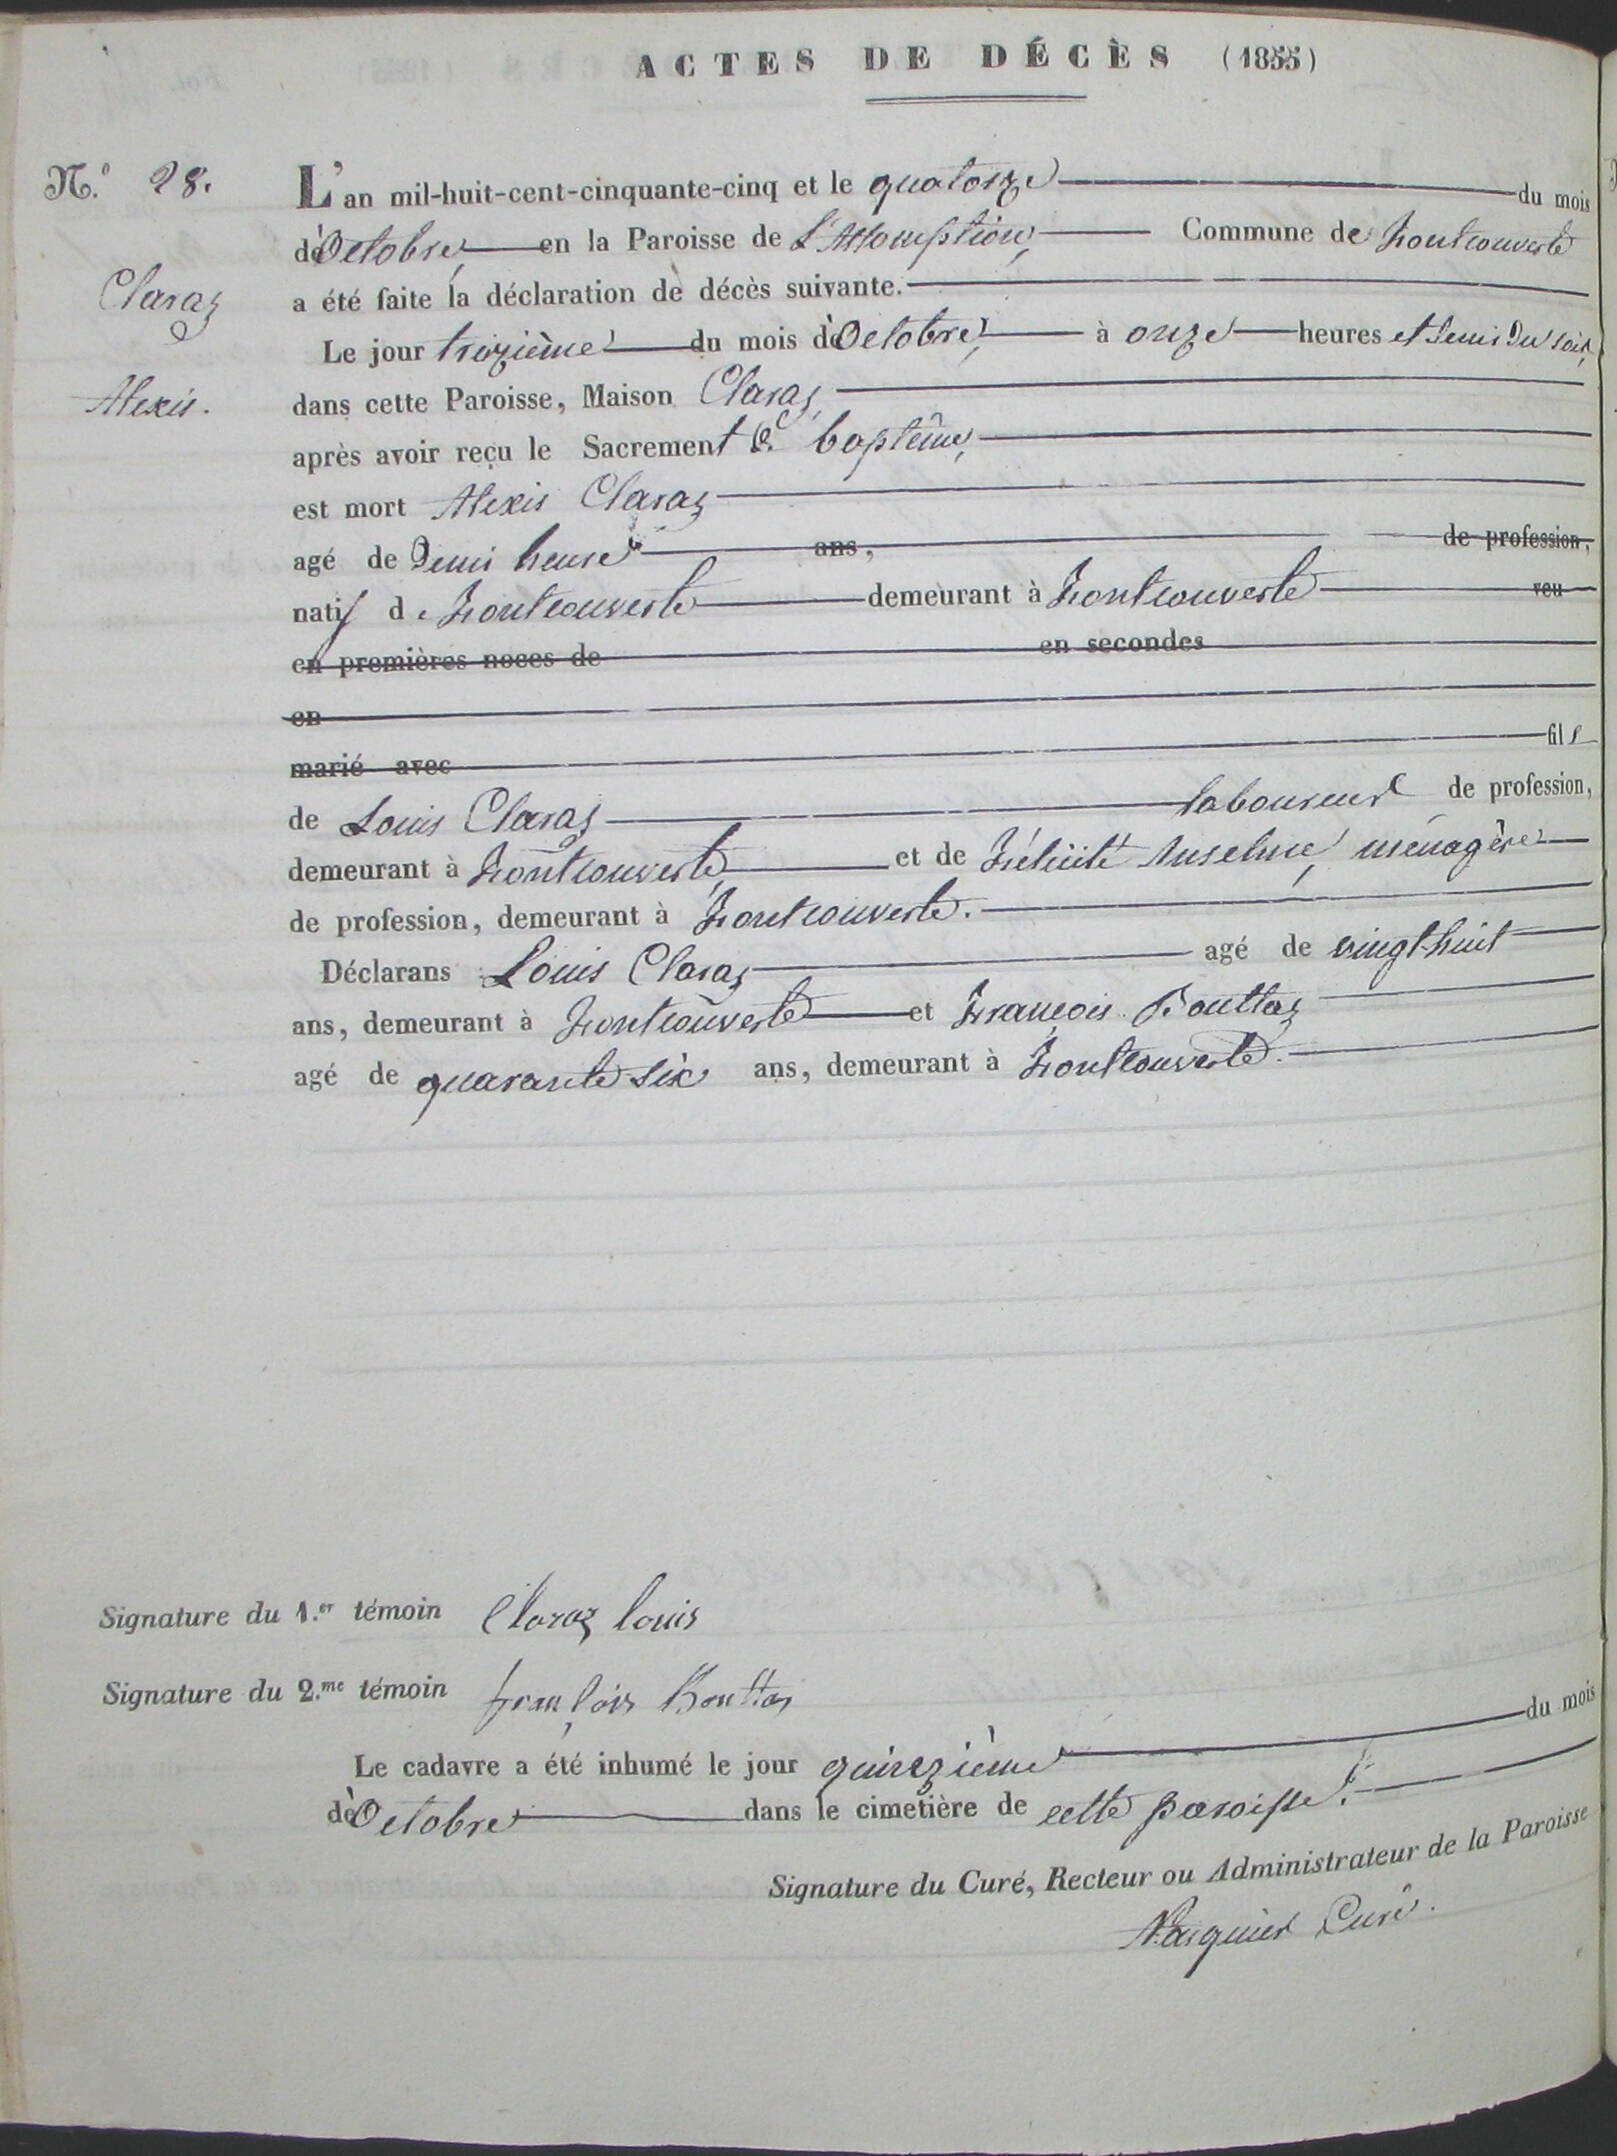 ACTES DE DÉCÈS (1855)
N.º 28.
L'an mil-huit-cent-cinquante-cinq et le quatorze du mois
d'Octobre, en la Paroisse de L'Assomption, Commune de Fontcouverte
Claraz
a été faite la déclaration de décès suivante.
Le jour treizième du mois d'Octobre, à onze heures et demi du soir,
Alexis.
dans cette Paroisse, Maison Claraz,
après avoir reçu le Sacrement de baptême,
est mort Alexis Claraz
agé de demi heure ans, de profession,
natif de Fontcouverte demeurant à Fontcouverte veu
en premières noces de en secondes
en
marié avec fils
de Louis Claraz laboureur de profession,
demeurant à Fontcouverte, et de Félicité Anselme, ménagère
de profession, demeurant à Fontcouverte.
Déclarans Louis Claraz agé de vingt-huit
ans, demeurant à Fontcouverte et François Bouttaz
agé de quarante six ans, demeurant à Fontcouverte.
Signature du 1.er témoin Claraz louis
Signature du 2.me témoin françois Bouttaz
Le cadavre a été inhumé le jour quinzième du mois
d'Octobre dans le cimetière de cette paroisse.
Signature du Curé, Recteur ou Administrateur de la Paroisse
Curé.